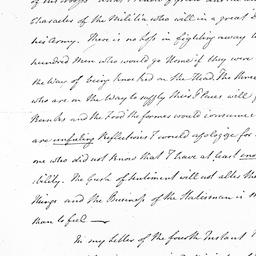 Character of the Militia who will in a great D
his Army. There is no loss in fighting away t
hundred Men who would go Home if they were
the Way of being knocked on the Head. The three
who are on the Way to supply their Places will
Ranks and the Food the former would consume
are unfeeling Reflections I would apologize for
me who did not know that I have at least eno
ibility. The Gush of Sentiment will not alter th
Things and the Business of the Statesman is m
than to feel —
In my Letter of the fourth Instant I